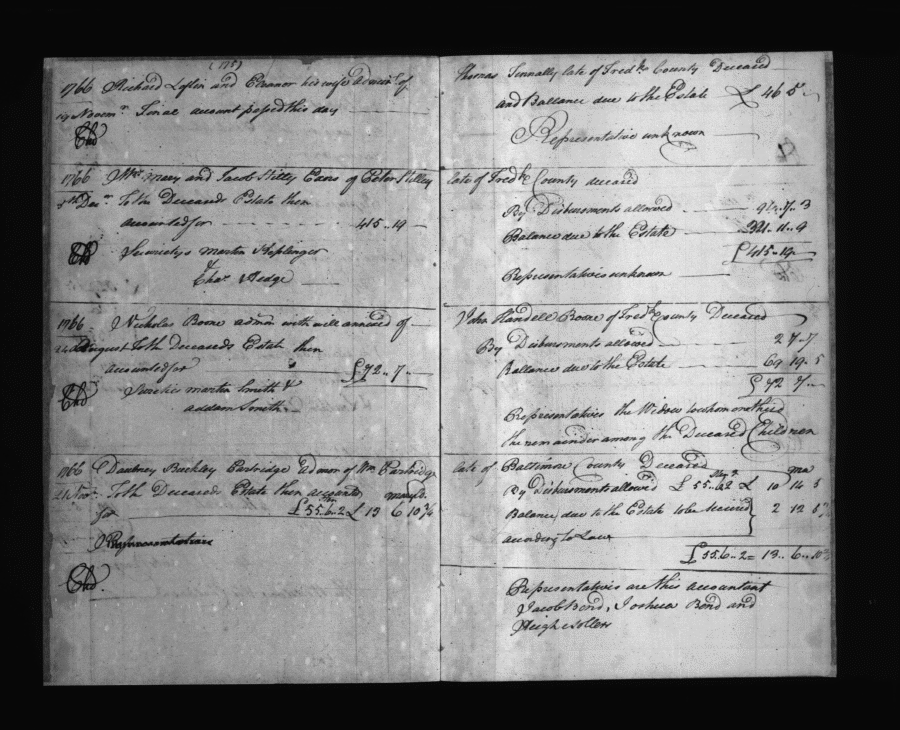 (175)
1766 Richard Loflin and Eleanor his wife admin.rs of
19 Novem.r Final account passed this day
Exd
1766 Mrs. Mary and Jacob Stilly Exers of Peter Stilley
Decr. To the Deceaseds Estate then
accounted for 415 .. 19
Exd Suerietys Martin
&
Chas. Hedge
1766 Nicholas Boone admin with will annexed of
August To the Deceaseds Estate then
accounted for £72 .. 7
Exd Sureties Martin Smith &
addam Smith
1766 Daubney Buckley Partridge admor of Wm. Partridge
21 Novr. To the Deceaseds Estate then accounted
for £55..6..2 £ 13 6 10¾
Representatives
Exd.
Thomas Nunnally late of Fredk. County Deceased
and Ballance due to the Estate £ 46 5
Representative unknown
late of Fredk. County deceased
By Disbursements allowed 94..7..3
Balance due to the Estate 321..11..9
£415..19
Representatives unknown
John Handell Boone of Fredk. County Deceased
By Disbursements allowed 2 7..7
Ballance due to the Estate 69 19..5
£72 7
Representatives the Widow to whom one third
the remainder among the Deceased Children
late of Baltimore County Deceased
By Disbursements allowed £55..6..2 £ 10 14 5
Balance due to the Estate to be secured 2 12 5¾
according to Law
£55..6..2 = 13..6..10¾
Representatives are this accountant
Jacob Bond, Joshua Bond and